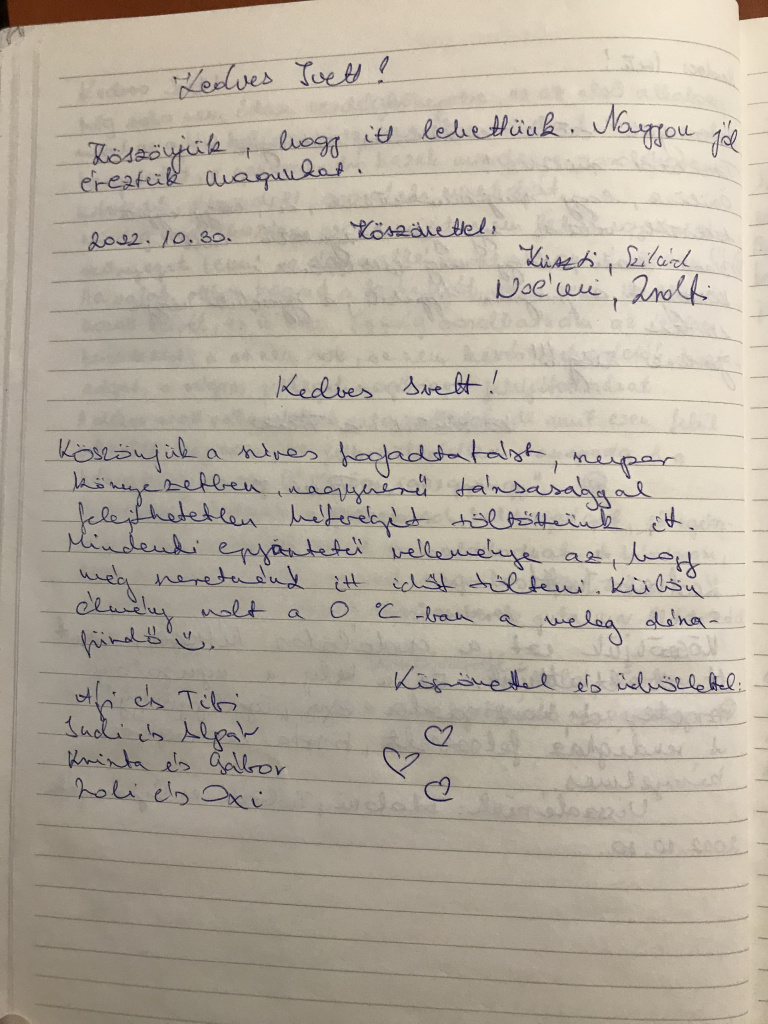 Kedves Ivett!
Köszönjük, hogy itt lehettünk. Nagyon jól
éreztük magunkat.
2012. 10. 30. Köszönettel:
Kriszti, Szilárd
Noémi, Zsolti
Kedves Ivett!
Köszönjük a szíves fogadtatást, szuper
környezetben, nagyszerű társasággal
felejthetetlen hétvégét töltöttünk itt.
Mindenki egyöntetű véleménye az, hogy
még szeretnénk itt időt tölteni. Külön
élmény volt a 0 °C-ban a meleg dézsa-
fürdő
Köszönettel és üdvözlettel:
és Tibi
Judi és Alpár
Krinta és Gábor
Zoli és Oxi